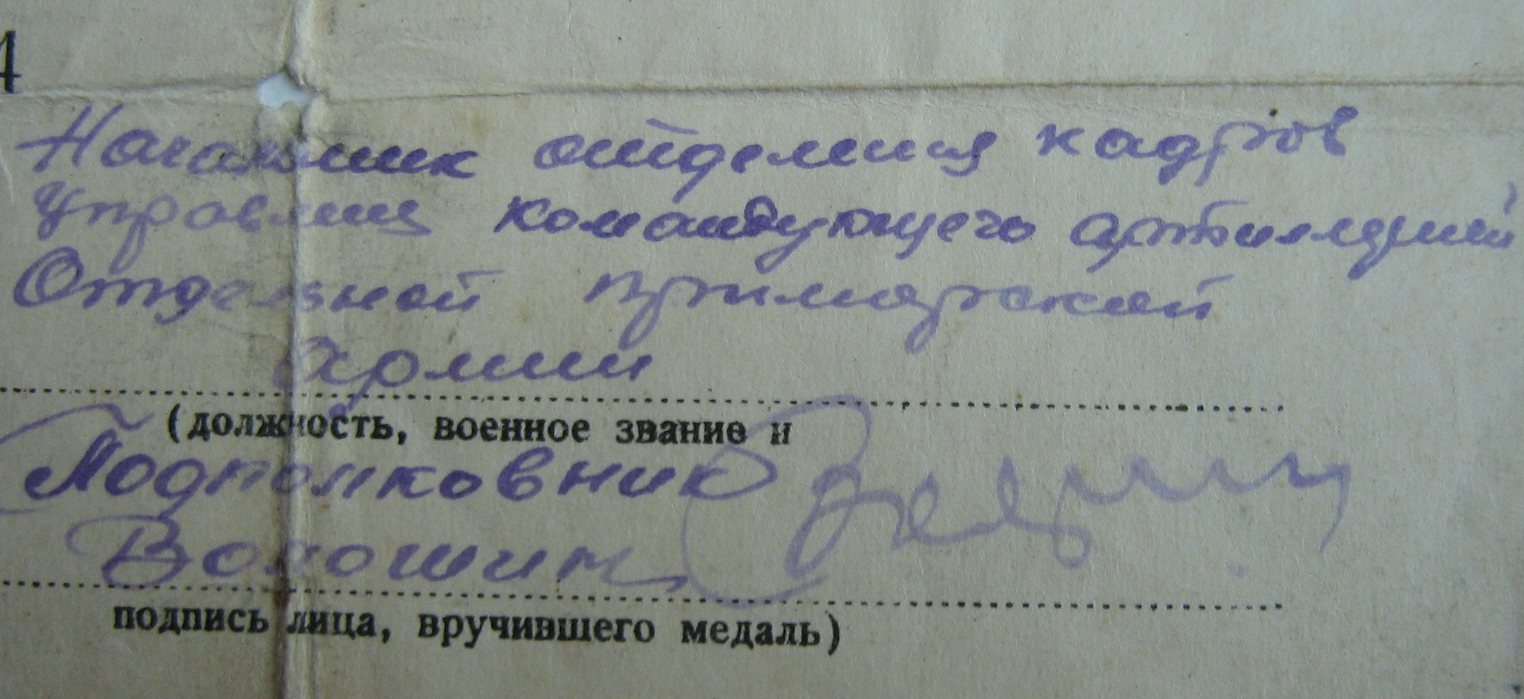 4
Начальник отделения кадров
Управления командующего артиллерией
Отдельной Приморской
Армии
(должность, военное звание и
Подполковник
Волошин
подпись лица, вручившего медаль)